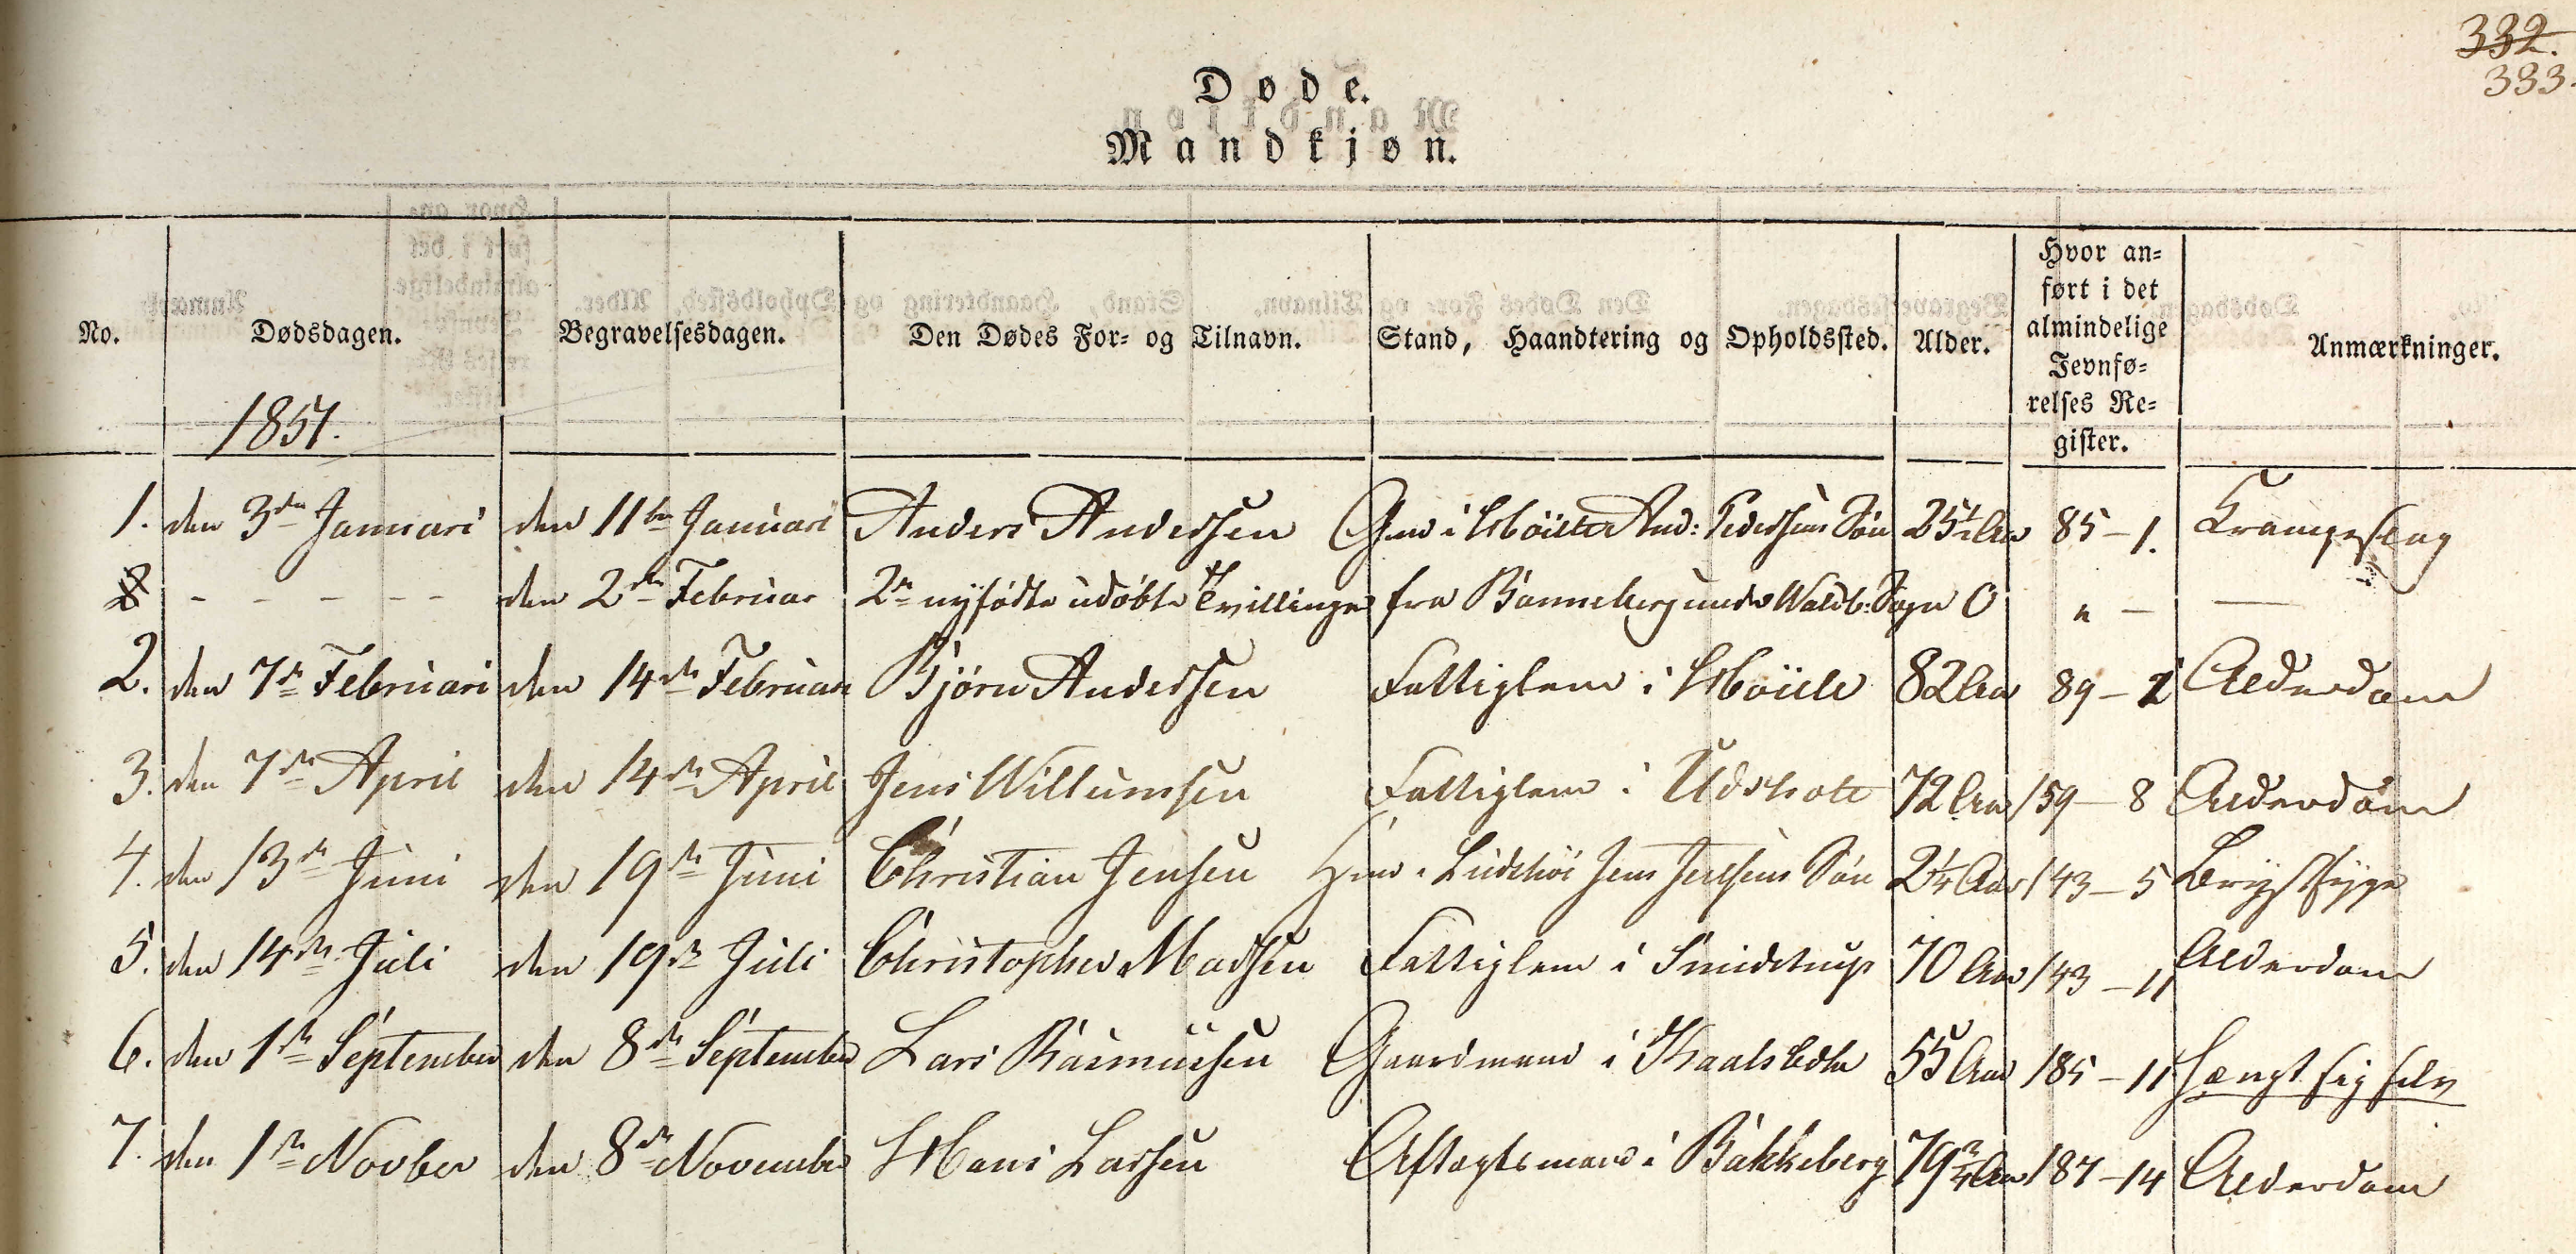 332.
333.
Døde.
Mandkjøn.
No. Dødsdagen. Begravelsesdagen. Den Dødes For- og Tilnavn. Stand, Haandtering og Opholdssted. Alder. Hvor an-
ført i det
almindelige
Jevnfø-
relses Re-
gister. Anmærkninger.
1851.
1. den 3den Januari den 11te Januari Anders Andersen Gmd i And: Pedersens Søn 25½ Aar 85-1. Krampeslag
2 - - - - - den 2den Februar 2de nyfødte udøbte Tvillinger fra Bannebjerg under Waldb: Sogn 0 " - —
2. den 7de Februari den 14de Februari Bjørn Andersen Fattiglem i 82 Aar 89-2 Alderdom
3. den 7de April den 14de April Jens Willumsen Fattiglem i Udsholt 72 Aar 159-8 Alderdom
4. den 13de Juni den 19de Juni Christian Jensen Hmd i Jens Jensens Søn 2¼ Aar 143-5 Brystsyge
5. den 14de Juli den 19de Juli Christopher Madsen Fattiglem i Smidstrup 70 Aar 143-11 Alderdom
6. den 1ste September den 8de September Lars Rasmussen Gaardmand i 55 Aar 185-11 Hængt sig selv
7. den 1ste Novber den 8de November Hans Larsen Aftægtsmand i Bakkebjerg 79¾ Aar 187-14 Alderdom